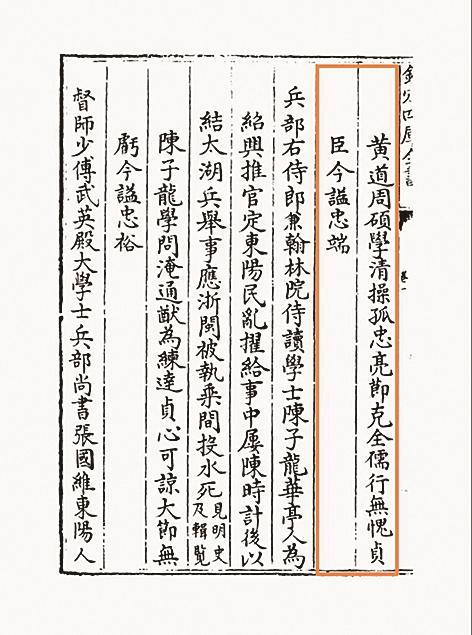 欽定四庫全書
黄道周碩學清操孤忠亮節克全儒行無愧貞
臣今諡忠端
兵部右侍郎兼翰林院侍讀學士陳子龍華亭人為
紹興推官定東陽民亂擢給事中屢陳時計後以
結太湖兵舉事應浙閩被執乘間投水死見明史及輯覽
陳子龍學問淹通猷為練達貞心可諒大節無
虧今諡忠裕
督師少傅武英殿大學士兵部尚書張國維東陽人